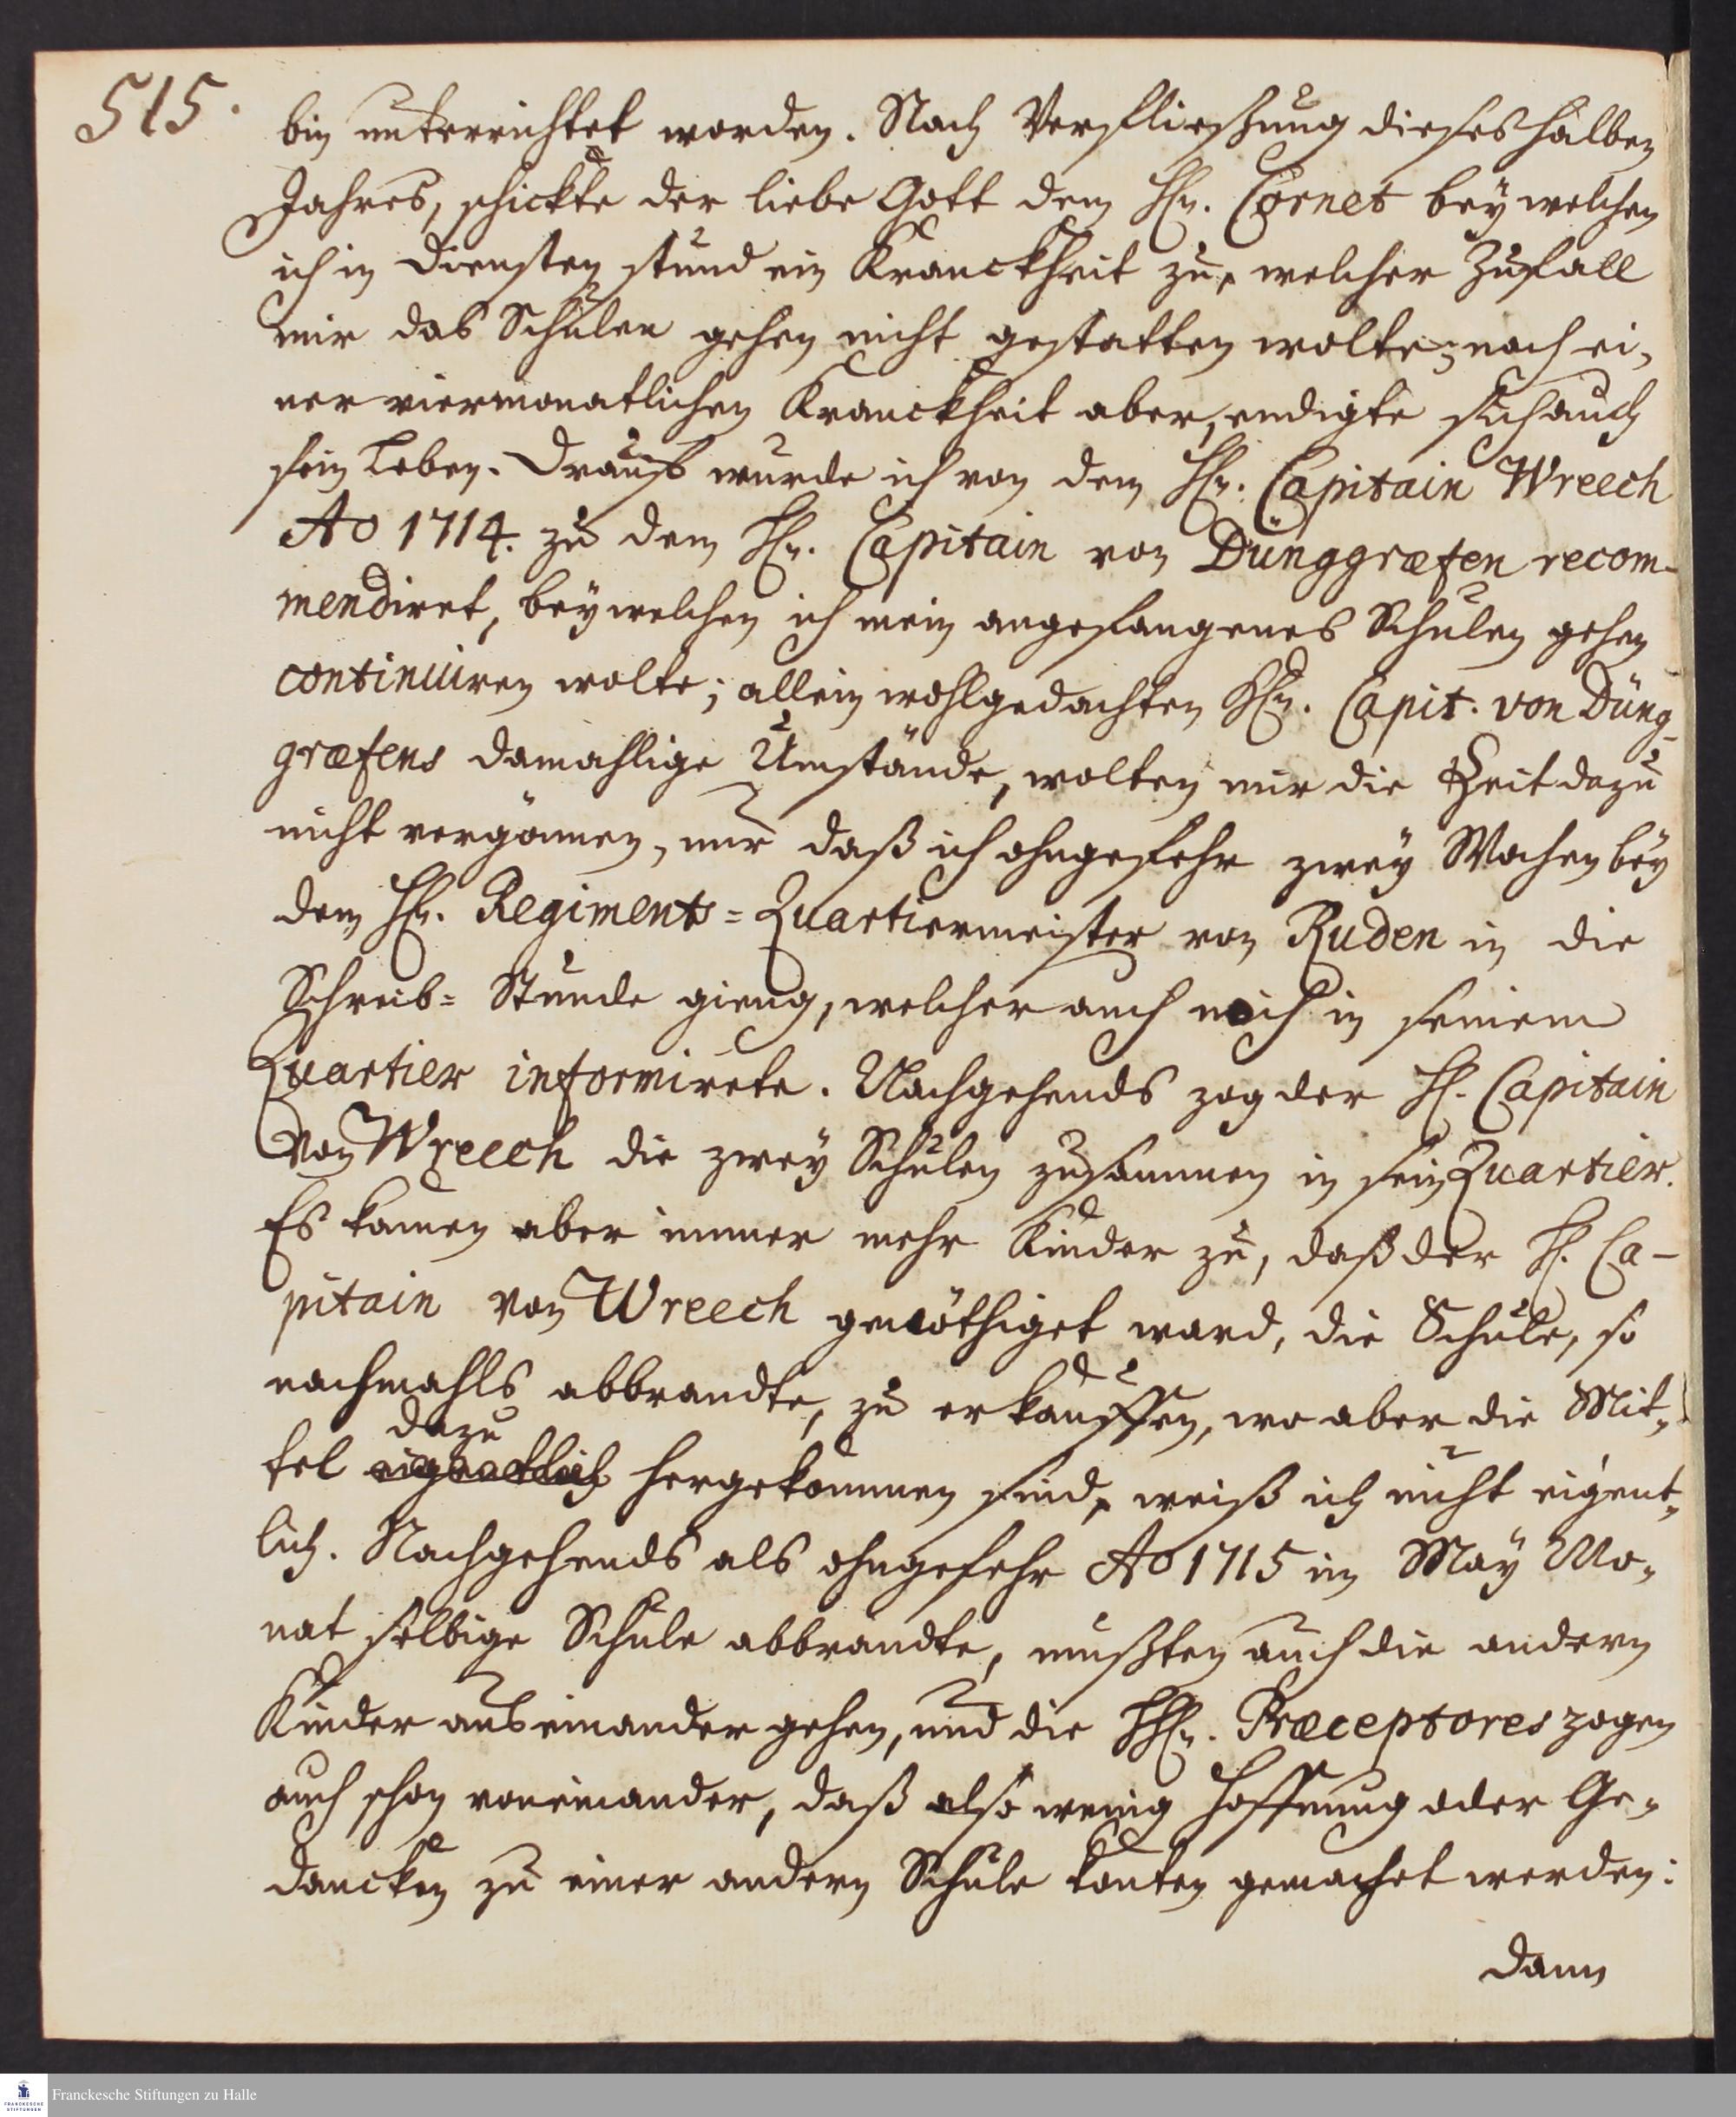 515.
bin unterrichtet worden. Nach Verfließung dieses halben
Jahres, schickte der liebe Gott dem Hn. Cornet bey welchen
ich in Diensten stund ein Kranckheit zu, welcher Zufall
mir das Schulen gehen nicht gestatten wolte; nach ei-
ner viermonatlichen Kranckheit aber, endigte sich auch
sein Leben. Drauf wurde ich von dem Hn. Capitain Wreech
Ao 1714. zu dem Hn. Capitain von Dünggræfen recom-
mendiret, bey welchen ich mein angefangenes Schulen gehen
continuiren wolte; allein wohlgedachten Hn. Capit. von Düng-
græfens damahlige Umstände, wolten mir die Zeit dazu
nicht vergönnen, nur daß ich ohngefehr zwey Wochen bey
dem Hn. Regiments=Quartiermeister von Ruden in die
Schreib= Stunde gieng, welcher auch mich in seinem
Quartier informirete. Nachgehends zog der H. Capitain
von Wreech die zwey Schulen zusammen in sein Quartier.
Es kamen aber immer mehr Kinder zu, daß der H. Ca-
pitain von Wreech genöthiget ward, die Schule, so
nachmahls abbrandte, zu erkauffen, wo aber die Mit-
dazu
tel eigentlich hergekommen sind, weiß ich nicht eigent-
lich. Nachgehends als ohngefehr Ao 1715 im May Mo-
nat selbige Schule abbrandte, mußten auch die andern
Kinder aus einander gehen, und die HHn. Præceptores zogen
auch schon voneinander, daß also wenig Hoffnung oder Ge-
dancken zu einer andern Schule konten gemachet werden:
dann
Franckesche Stiftungen zu Halle
FRANCKESCHE
STIFTUNGEN